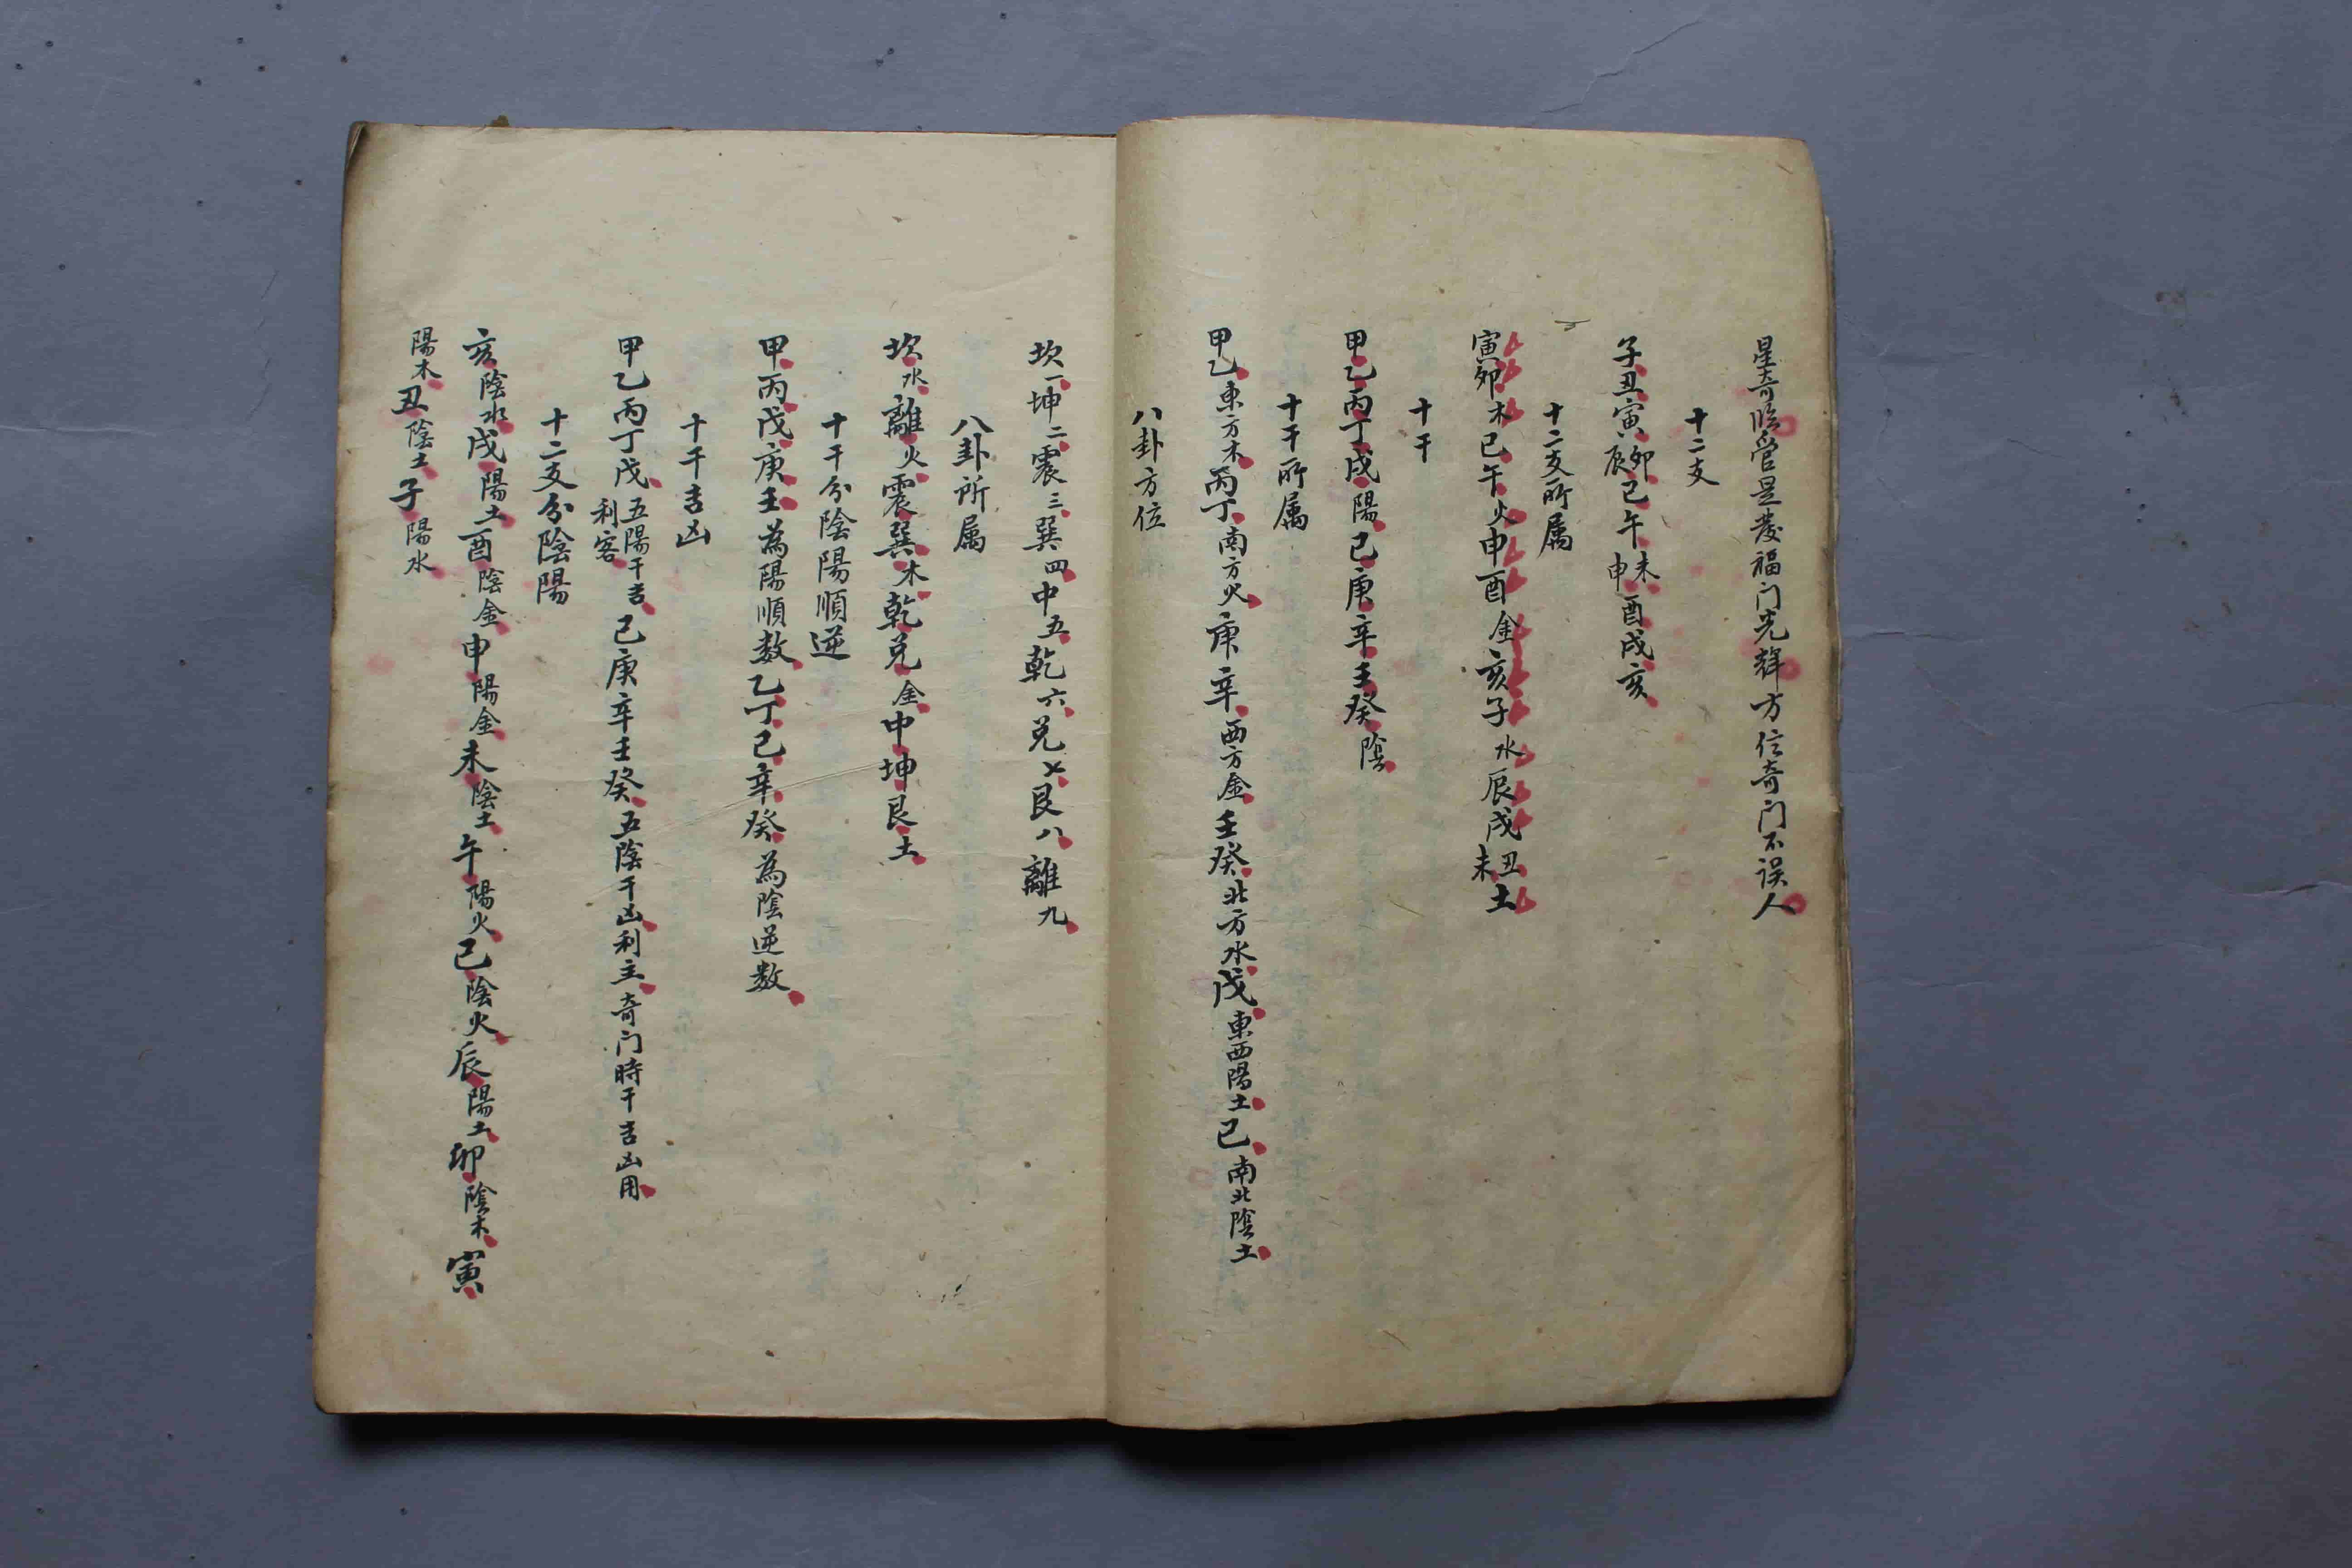 星奇臨宮是發福门光輝方位奇门不误人
十二支
子丑寅卯辰巳午未申酉戌亥
十二支所属
寅卯木巳午火申酉金亥子水辰戌丑未土
十干
甲乙丙丁戊陽己庚辛壬癸陰
十干所属
甲乙東方木丙丁南方火庚辛西方金壬癸北方水戊東西陽土己南北陰土
八卦方位
坎一坤二震三巽四中五乾六兑七艮八離九
八卦所属
坎水離火震巽木乾兑金中坤艮土
十干分陰陽順逆
甲丙戊庚壬為陽順数乙丁己辛癸為陰逆数
十干吉凶
甲乙丙丁戊五陽干吉利客己庚辛壬癸五陰干凶利主奇门時干吉凶用
十二支分陰陽
亥陰水戌陽土酉陰金申陽金未陰土午陽火巳陰火辰陽土卯陰木寅
陽木丑陰土子陽水